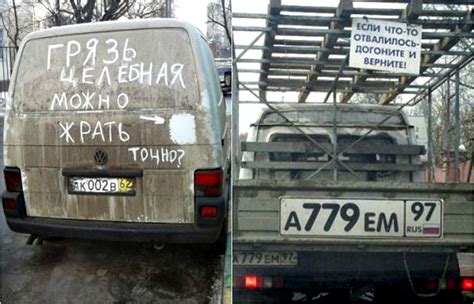 ГРЯЗЬ
ЦЕЛЕБНАЯ
МОЖНО
ЖРАТЬ
ТОЧНО?
К002В 62
ЕСЛИ ЧТО-ТО
ОТВАЛИЛОСЬ-
ДОГОНИТЕ И
ВЕРНИТЕ!
А779ЕМ 97
RUS
А779ЕМ 97